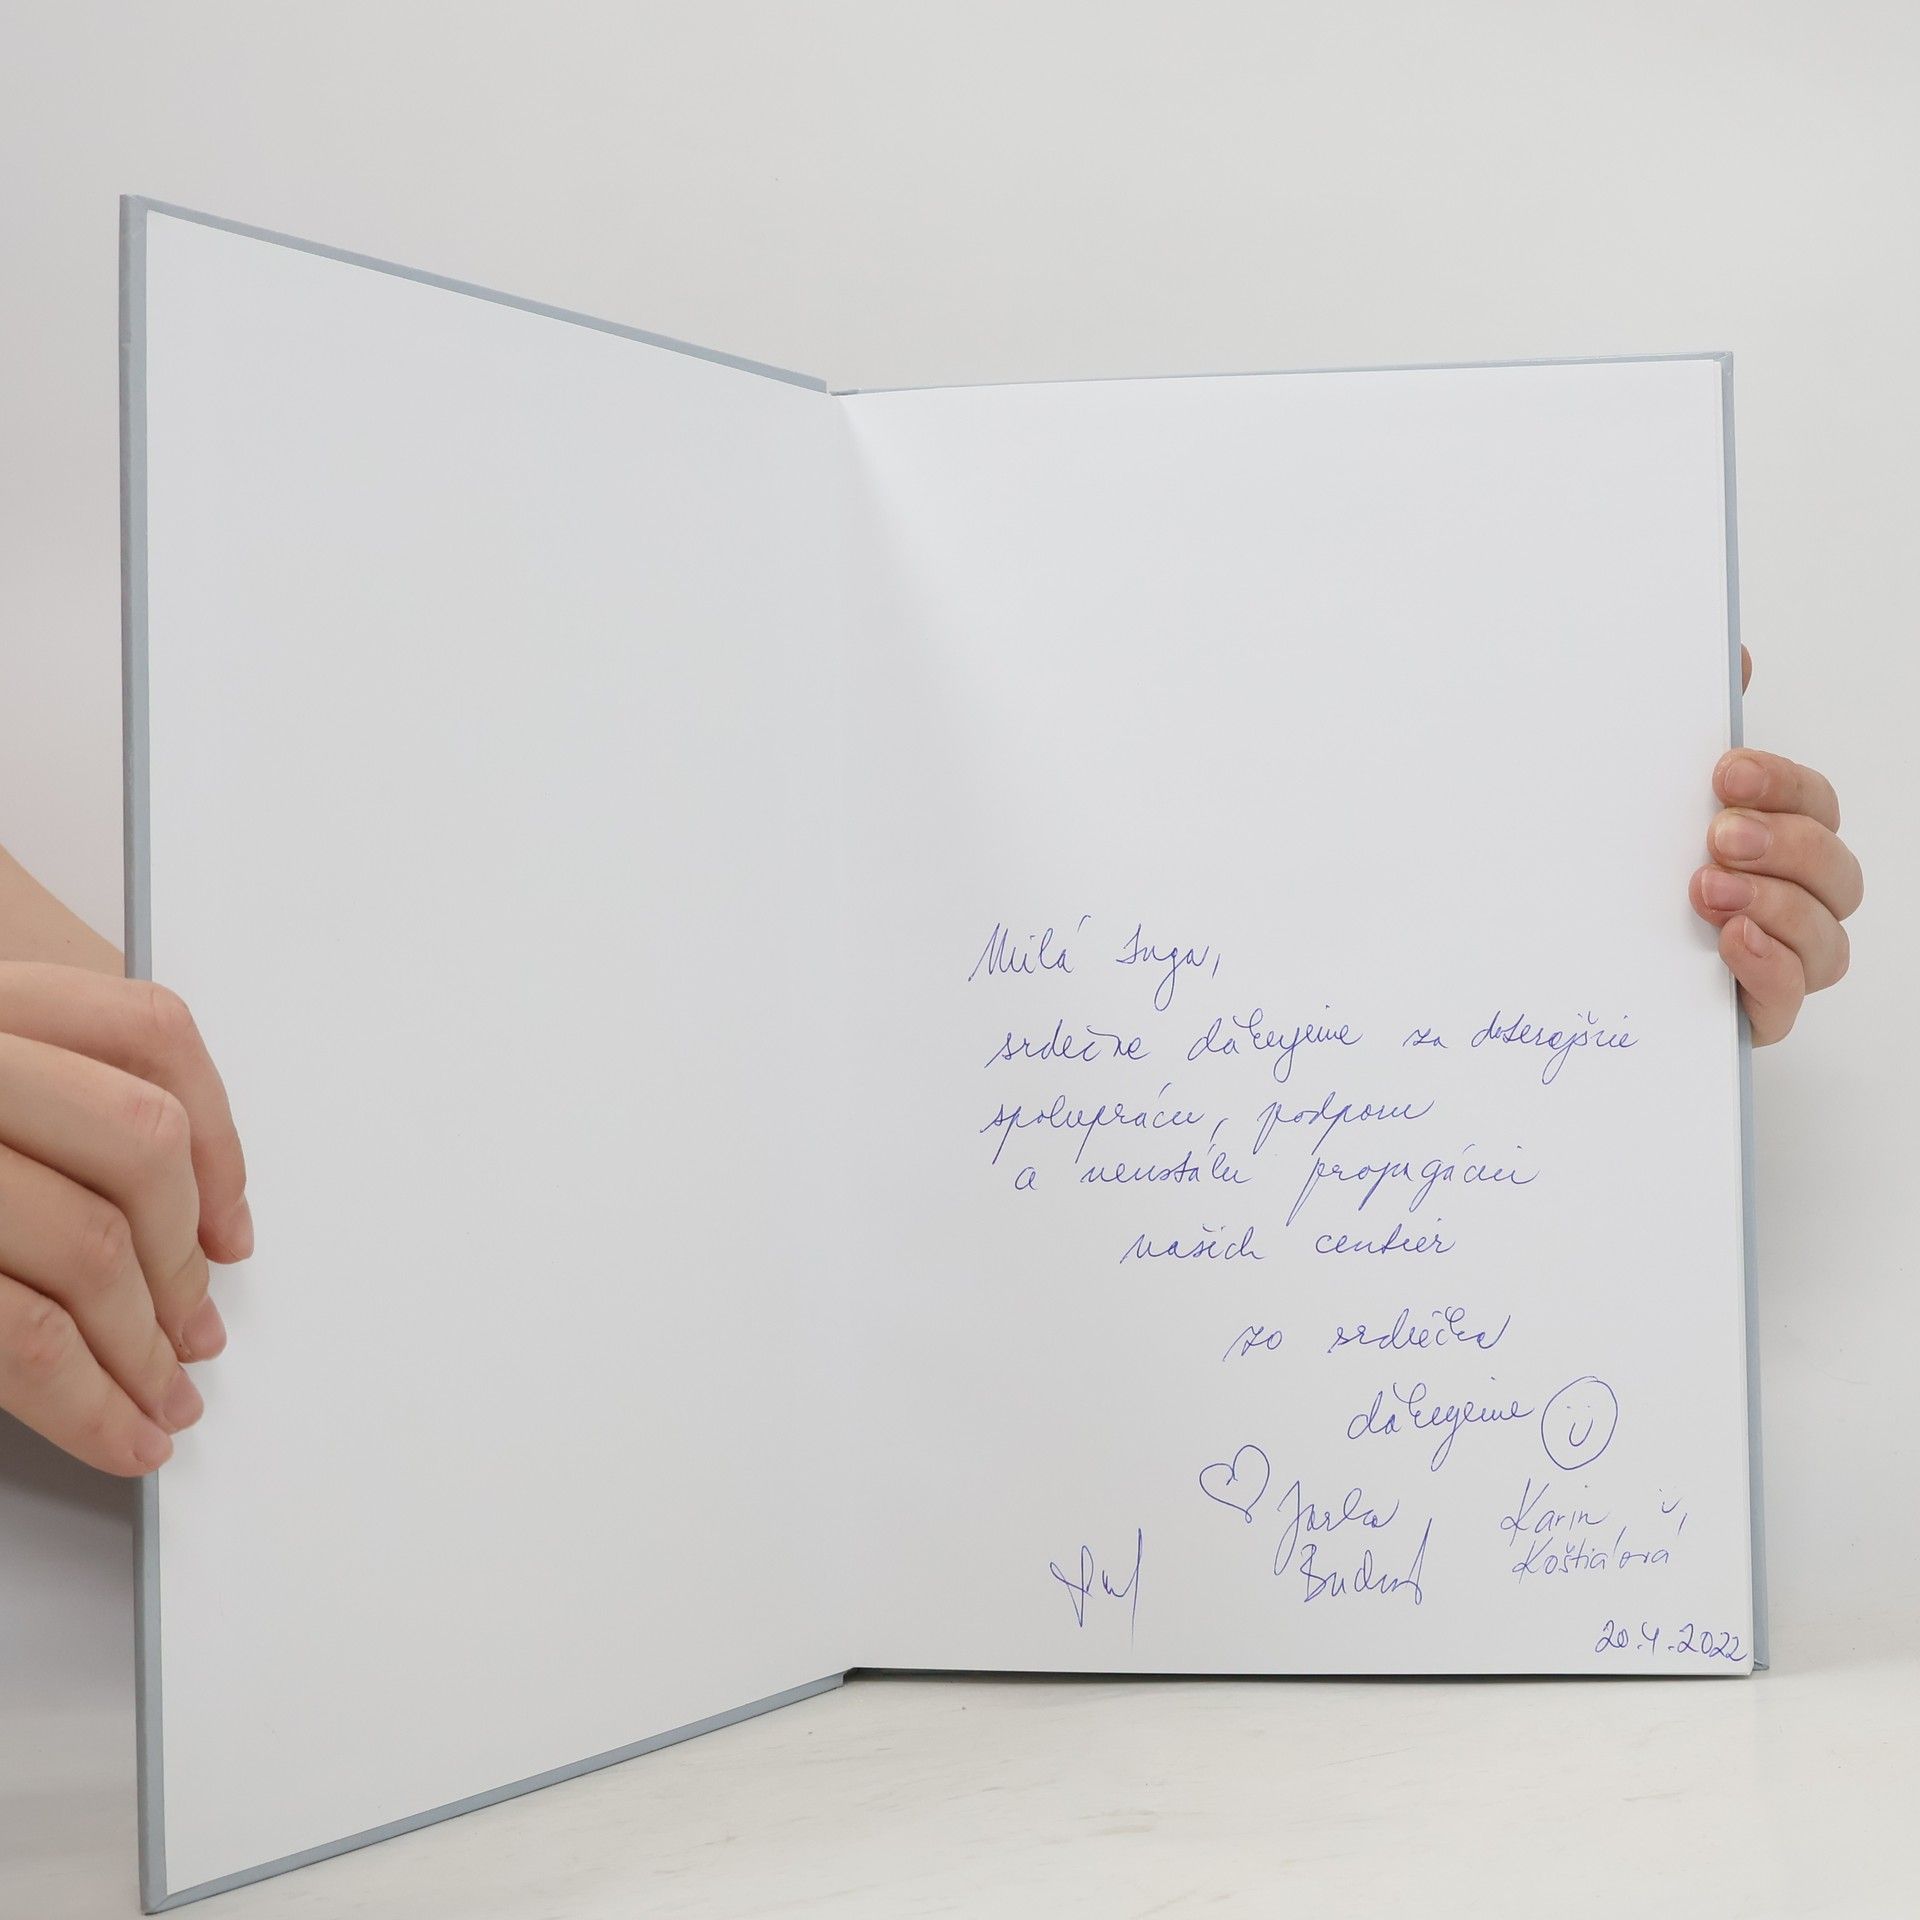 Milá Inga,
srdečne ďakujeme za doterajšie
spoluprácu, podporu
a neustálu propagáciu
našich centier
zo srdiečka
ďakujeme
Jarka
Karin
Košťialová
20.4.2022